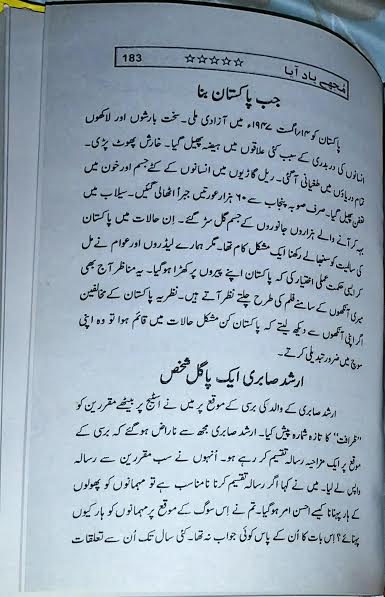 183 ☆☆☆☆☆ مجھے یاد آیا
جب پاکستان بنا
پاکستان کو ۱۴/اگست ۱۹۴۷ء میں آزادی ملی۔ سخت بارشوں اور لاکھوں
انسانوں کی دربدری کے سبب کئی علاقوں میں ہیضہ پھیل گیا۔ خارش پھوٹ پڑی۔
تمام دریاؤں میں طغیانی آگئی۔ ریل گاڑیوں میں انسانوں کے کٹے جسم اور خون میں
تعفن پھیل گیا۔ صرف صوبہ پنجاب سے ۶۰ ہزار عورتیں جبراً اٹھالی گئیں۔ سیلاب میں
بہہ کر آنے والے ہزاروں جانوروں کے جسم گل سڑ گئے۔ اِن حالات میں پاکستان
کی سالمیت کو سنبھالے رکھنا ایک مشکل کام تھا۔ مگر ہمارے لیڈروں اور عوام نے مل
کر ایسی حکمت عملی اختیار کی کہ پاکستان اپنے پیروں پر کھڑا ہوگیا۔ یہ مناظر آج بھی
میری آنکھوں کے سامنے فلم کی طرح چلتے نظر آتے ہیں۔ نظریہ پاکستان کے مخالفین
اگر اپنی آنکھوں سے دیکھ لیتے کہ پاکستان کن مشکل حالات میں قائم ہوا تو وہ اپنی
سوچ میں ضرور تبدیلی کرتے۔
ارشد صابری ایک پاگل شخص
ارشد صابری کے والد کی برسی کے موقع پر میں نے اسٹیج پر بیٹھے مقررین کو
"ظرافت" کا تازہ شمارہ پیش کیا۔ ارشد صابری مجھ سے ناراض ہوگئے کہ برسی کے
موقع پر ایک مزاحیہ رسالہ تقسیم کر رہے ہو۔ اُنہوں نے سب مقررین سے رسالہ
واپس لے لیا۔ میں نے کہا اگر رسالہ تقسیم کرنا نامناسب ہے تو مہمانوں کو پھولوں
کے ہار پہنانا کیسے احسن امر ہوگیا۔ تم نے اِس سوگ کے موقع پر مہمانوں کو ہار کیوں
پہنائے؟ اِس بات کا اُن کے پاس کوئی جواب نہ تھا۔ کئی سال تک اُن سے تعلقات